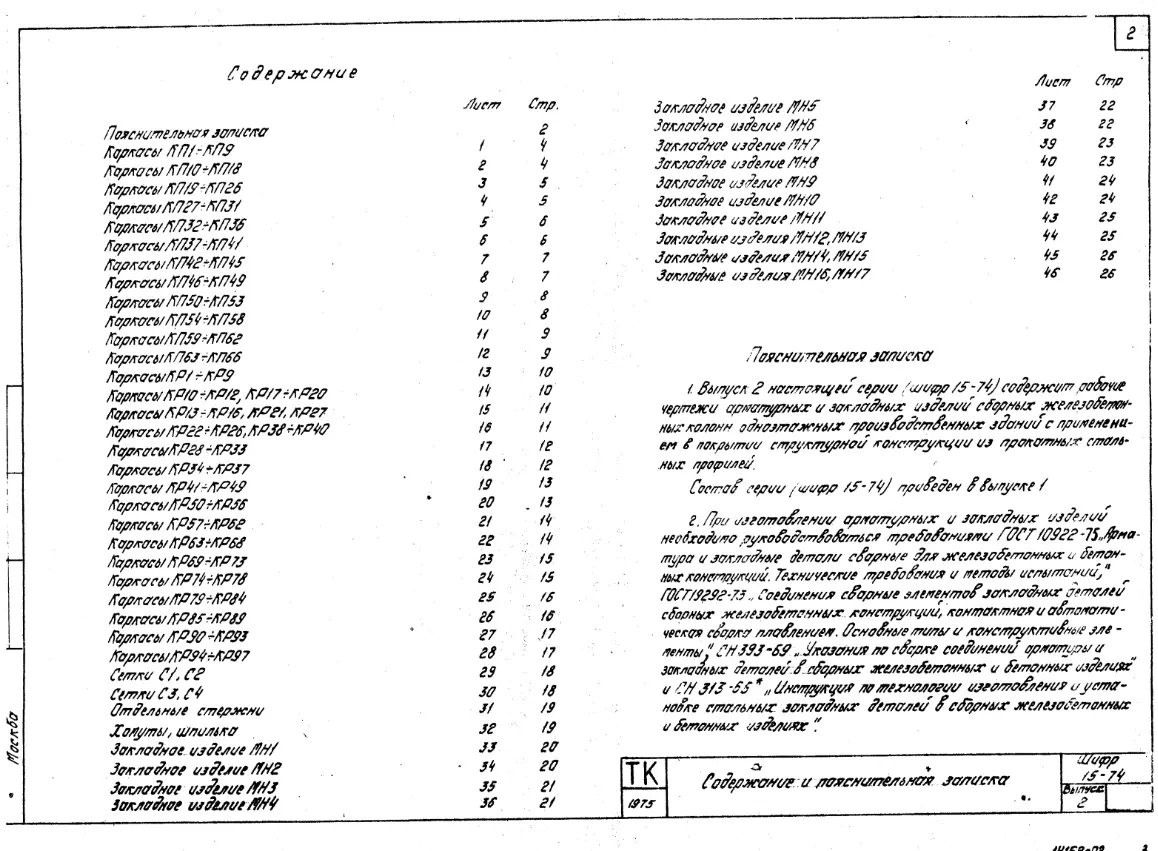 2
Содержание
Лист Стр.
Пояснительная записка 2
Каркасы КП1÷КП9 1 4
Каркасы КП10÷КП18 2 4
Каркасы КП19÷КП26 3 5
Каркасы КП27÷КП31 4 5
Каркасы КП32÷КП36 5 6
Каркасы КП37÷КП41 6 6
Каркасы КП42÷КП45 7 7
Каркасы КП46÷КП49 8 7
Каркасы КП50÷КП53 9 8
Каркасы КП54÷КП58 10 8
Каркасы КП59÷КП62 11 9
Каркасы КП63÷КП66 12 9
Каркасы КР1÷КР9 13 10
Каркасы КР10÷КР12, КР17÷КР20 14 10
Каркасы КР13÷КР16, КР21, КР27 15 11
Каркасы КР22÷КР26, КР38÷КР40 16 11
Каркасы КР28÷КР33 17 12
Каркасы КР34÷КР37 18 12
Каркасы КР41÷КР49 19 13
Каркасы КР50÷КР56 20 13
Каркасы КР57÷КР62 21 14
Каркасы КР63÷КР68 22 14
Каркасы КР69÷КР73 23 15
Каркасы КР74÷КР78 24 15
Каркасы КР79÷КР84 25 16
Каркасы КР85÷КР89 26 16
Каркасы КР90÷КР93 27 17
Каркасы КР94÷КР97 28 17
Сетки С1, С2 29 18
Сетки С3, С4 30 18
Отдельные стержни 31 19
Хомуты, шпилька 32 19
Закладное изделие МН1 33 20
Закладное изделие МН2 34 20
Закладное изделие МН3 35 21
Закладное изделие МН4 36 21
Лист Стр
Закладное изделие МН5 37 22
Закладное изделие МН6 38 22
Закладное изделие МН7 39 23
Закладное изделие МН8 40 23
Закладное изделие МН9 41 24
Закладное изделие МН10 42 24
Закладное изделие МН11 43 25
Закладные изделия МН12, МН13 44 25
Закладные изделия МН14, МН15 45 26
Закладные изделия МН16, МН17 46 26
Пояснительная записка
1. Выпуск 2 настоящей серии (шифр 15-74) содержит рабочие
чертежи арматурных и закладных изделий сборных железобетон-
ных колонн одноэтажных производственных зданий с применени-
ем в покрытии структурной конструкции из прокатных сталь-
ных профилей.
Состав серии (шифр 15-74) приведен в Выпуске 1
2. При изготовлении арматурных и закладных изделий
необходимо руководствоваться требованиями ГОСТ 10922-75 „Арма-
тура и закладные детали сварные для железобетонных и бетон-
ных конструкций. Технические требования и методы испытаний,"
ГОСТ19292-73 „Соединения сварные элементов закладных деталей
сборных железобетонных конструкций, контактная и автомати-
ческая сварка плавлением. Основные типы и конструктивные эле-
менты," СН 393-69 „Указания по сварке соединений арматуры и
закладных деталей в сборных железобетонных и бетонных изделиях"
и СН 313-65* „Инструкция по технологии изготовления и уста-
новке стальных закладных деталей в сборных железобетонных
и бетонных изделиях".
Москва
ТК
1975
Содержание и пояснительная записка
Шифр
15-74
Выпуск
2